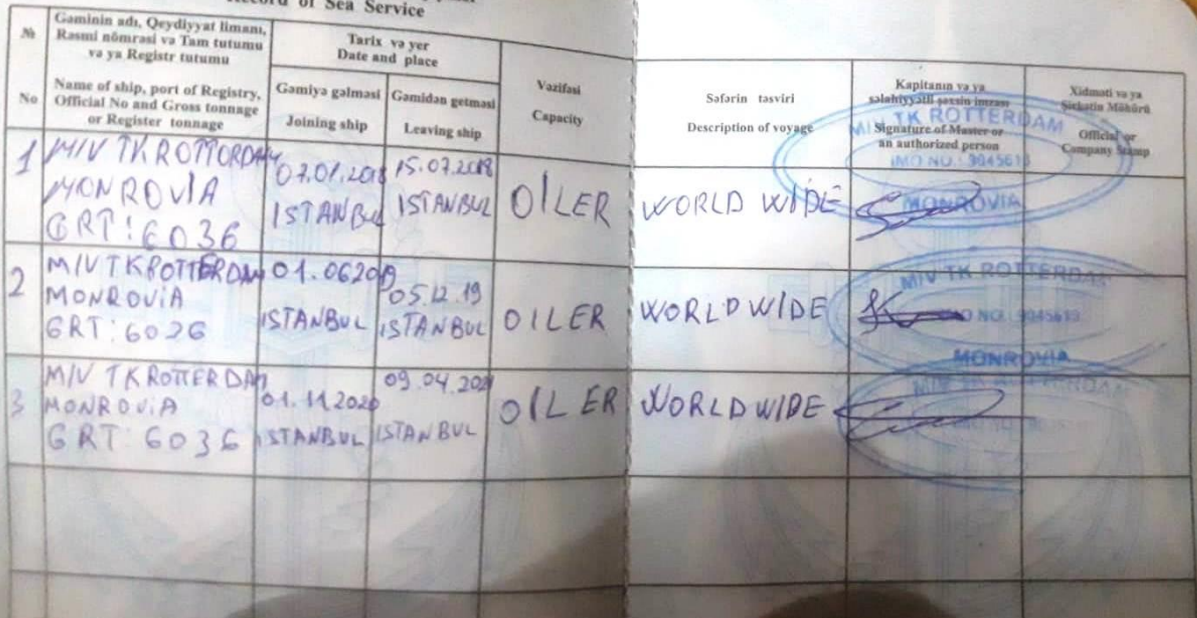 of Sea Service
№
No
Gəminin adı, Qeydiyyat limanı,
Rəsmi nömrəsi və Tam tutumu
və ya Registr tutumu
Name of ship, port of Registry,
Official No and Gross tonnage
or Register tonnage
Tarix və yer
Date and place
Gəmiyə gəlməsi
Joining ship
Gəmidən getməsi
Leaving ship
Vəzifəsi
Capacity
Səfərin təsviri
Description of voyage
Kapitanın və ya
səlahiyyətli şəxsin imzası
Signature of Master or
an authorized person
Xidməti və ya
Şirkətin Möhürü
Official or
Company Stamp
1
M/V TK ROTTORDAM
MONROVIA
GRT: 6036
07.01.2018
ISTANBUL
15.07.2018
ISTANBUL
OILER
WORLD WIDE
M/V TK ROTTERDAM
IMO NO.: 9045613
MONROVIA
2
M/V TK ROTTERDAM
MONROVIA
GRT: 6036
01.062019
ISTANBUL
05.12.19
ISTANBUL
OILER
WORLD WIDE
M/V TK ROTTERDAM
IMO NO.: 9045613
MONROVIA
3
M/V TK ROTTERDAM
MONROVIA
GRT: 6036
01.11.2020
ISTANBUL
09.04.2021
ISTANBUL
OILER
WORLD WIDE
M/V TK ROTTERDAM